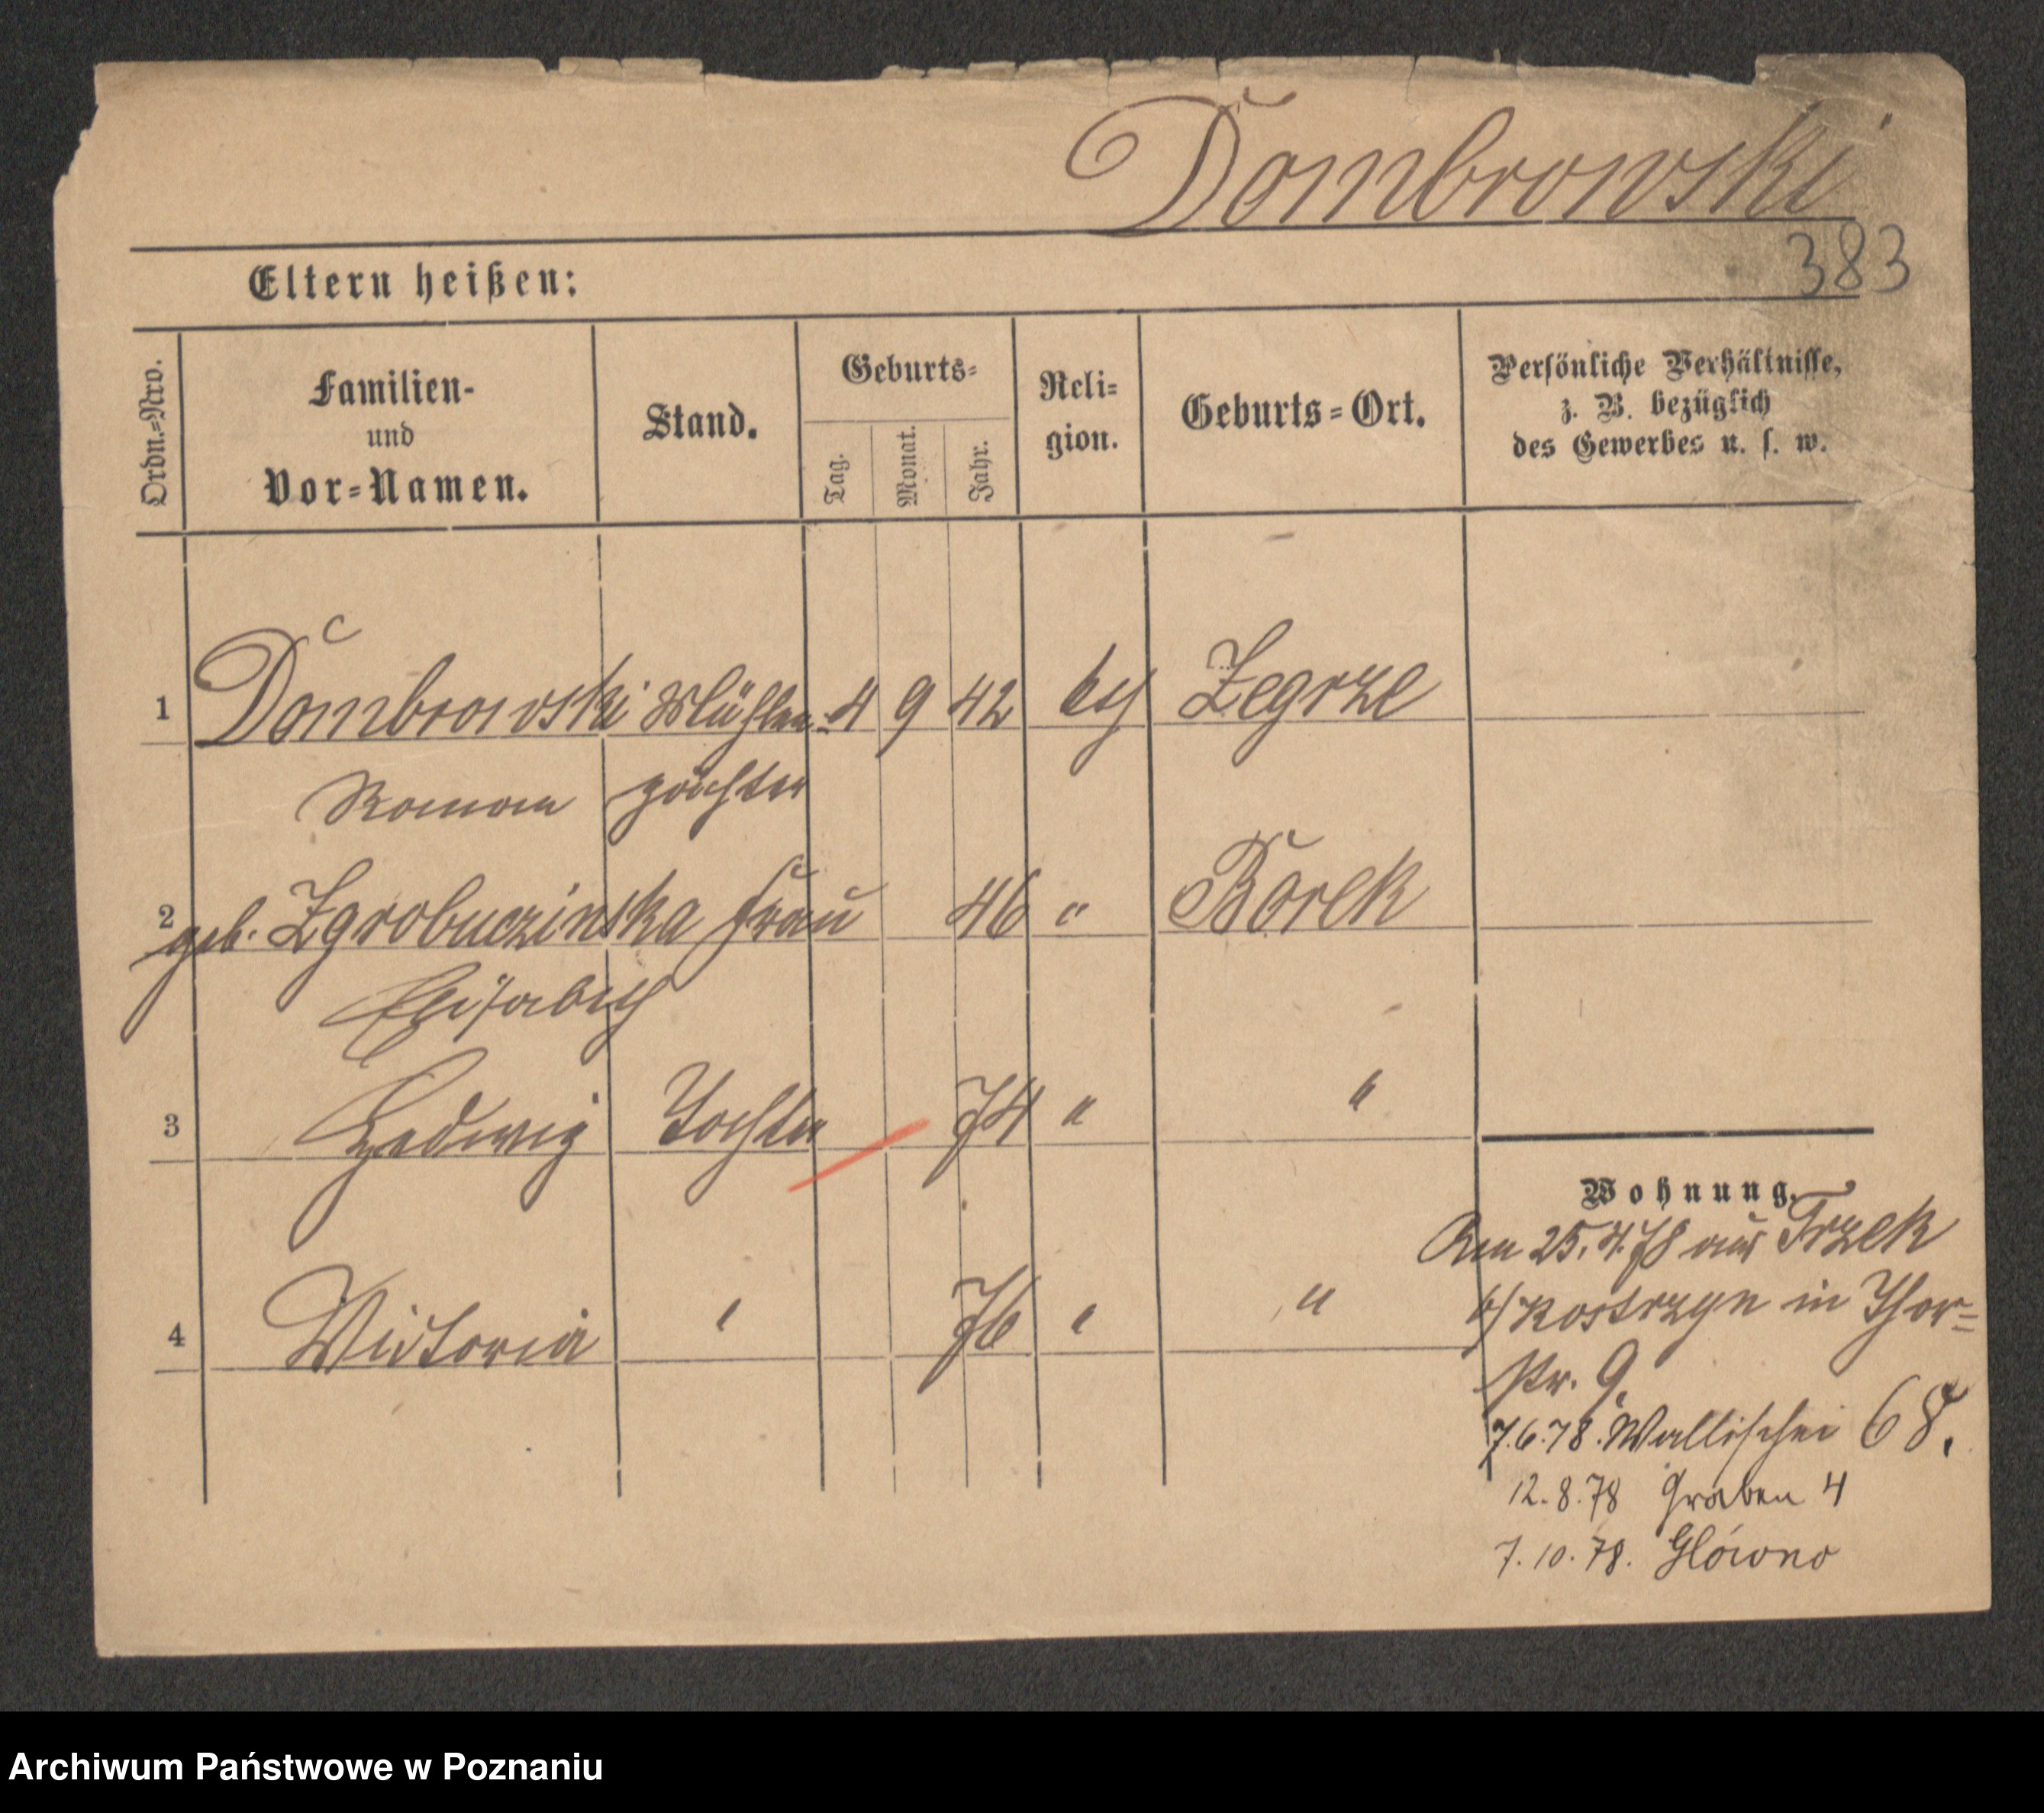 Dombrowski
383
Eltern heißen:
Ordn.-Nro.
Familien-
und
Vor-Namen.
Stand.
Geburts-
Tag.
Monat.
Jahr.
Reli-
gion.
Geburts-Ort.
Persönliche Verhältnisse,
z. B. bezüglich
des Gewerbes u. s. w.
1 Dombrowski Mühlen- 4 9 42 kth Zegrze
Roman pächter
2 geb. Zgrobuczinska Frau 46 " Borek
Elisabeth
3 Hedwig Tochter 74 " "
4 Victoria " 76 " "
Wohnung.
Am 25.4.78 aus Trzek
b/ Kostrzyn in Thor-
str. 9.
7.6.78. Wallischei 68.
12.8.78 Graben 4
7.10.78. Glówno
Archiwum Państwowe w Poznaniu